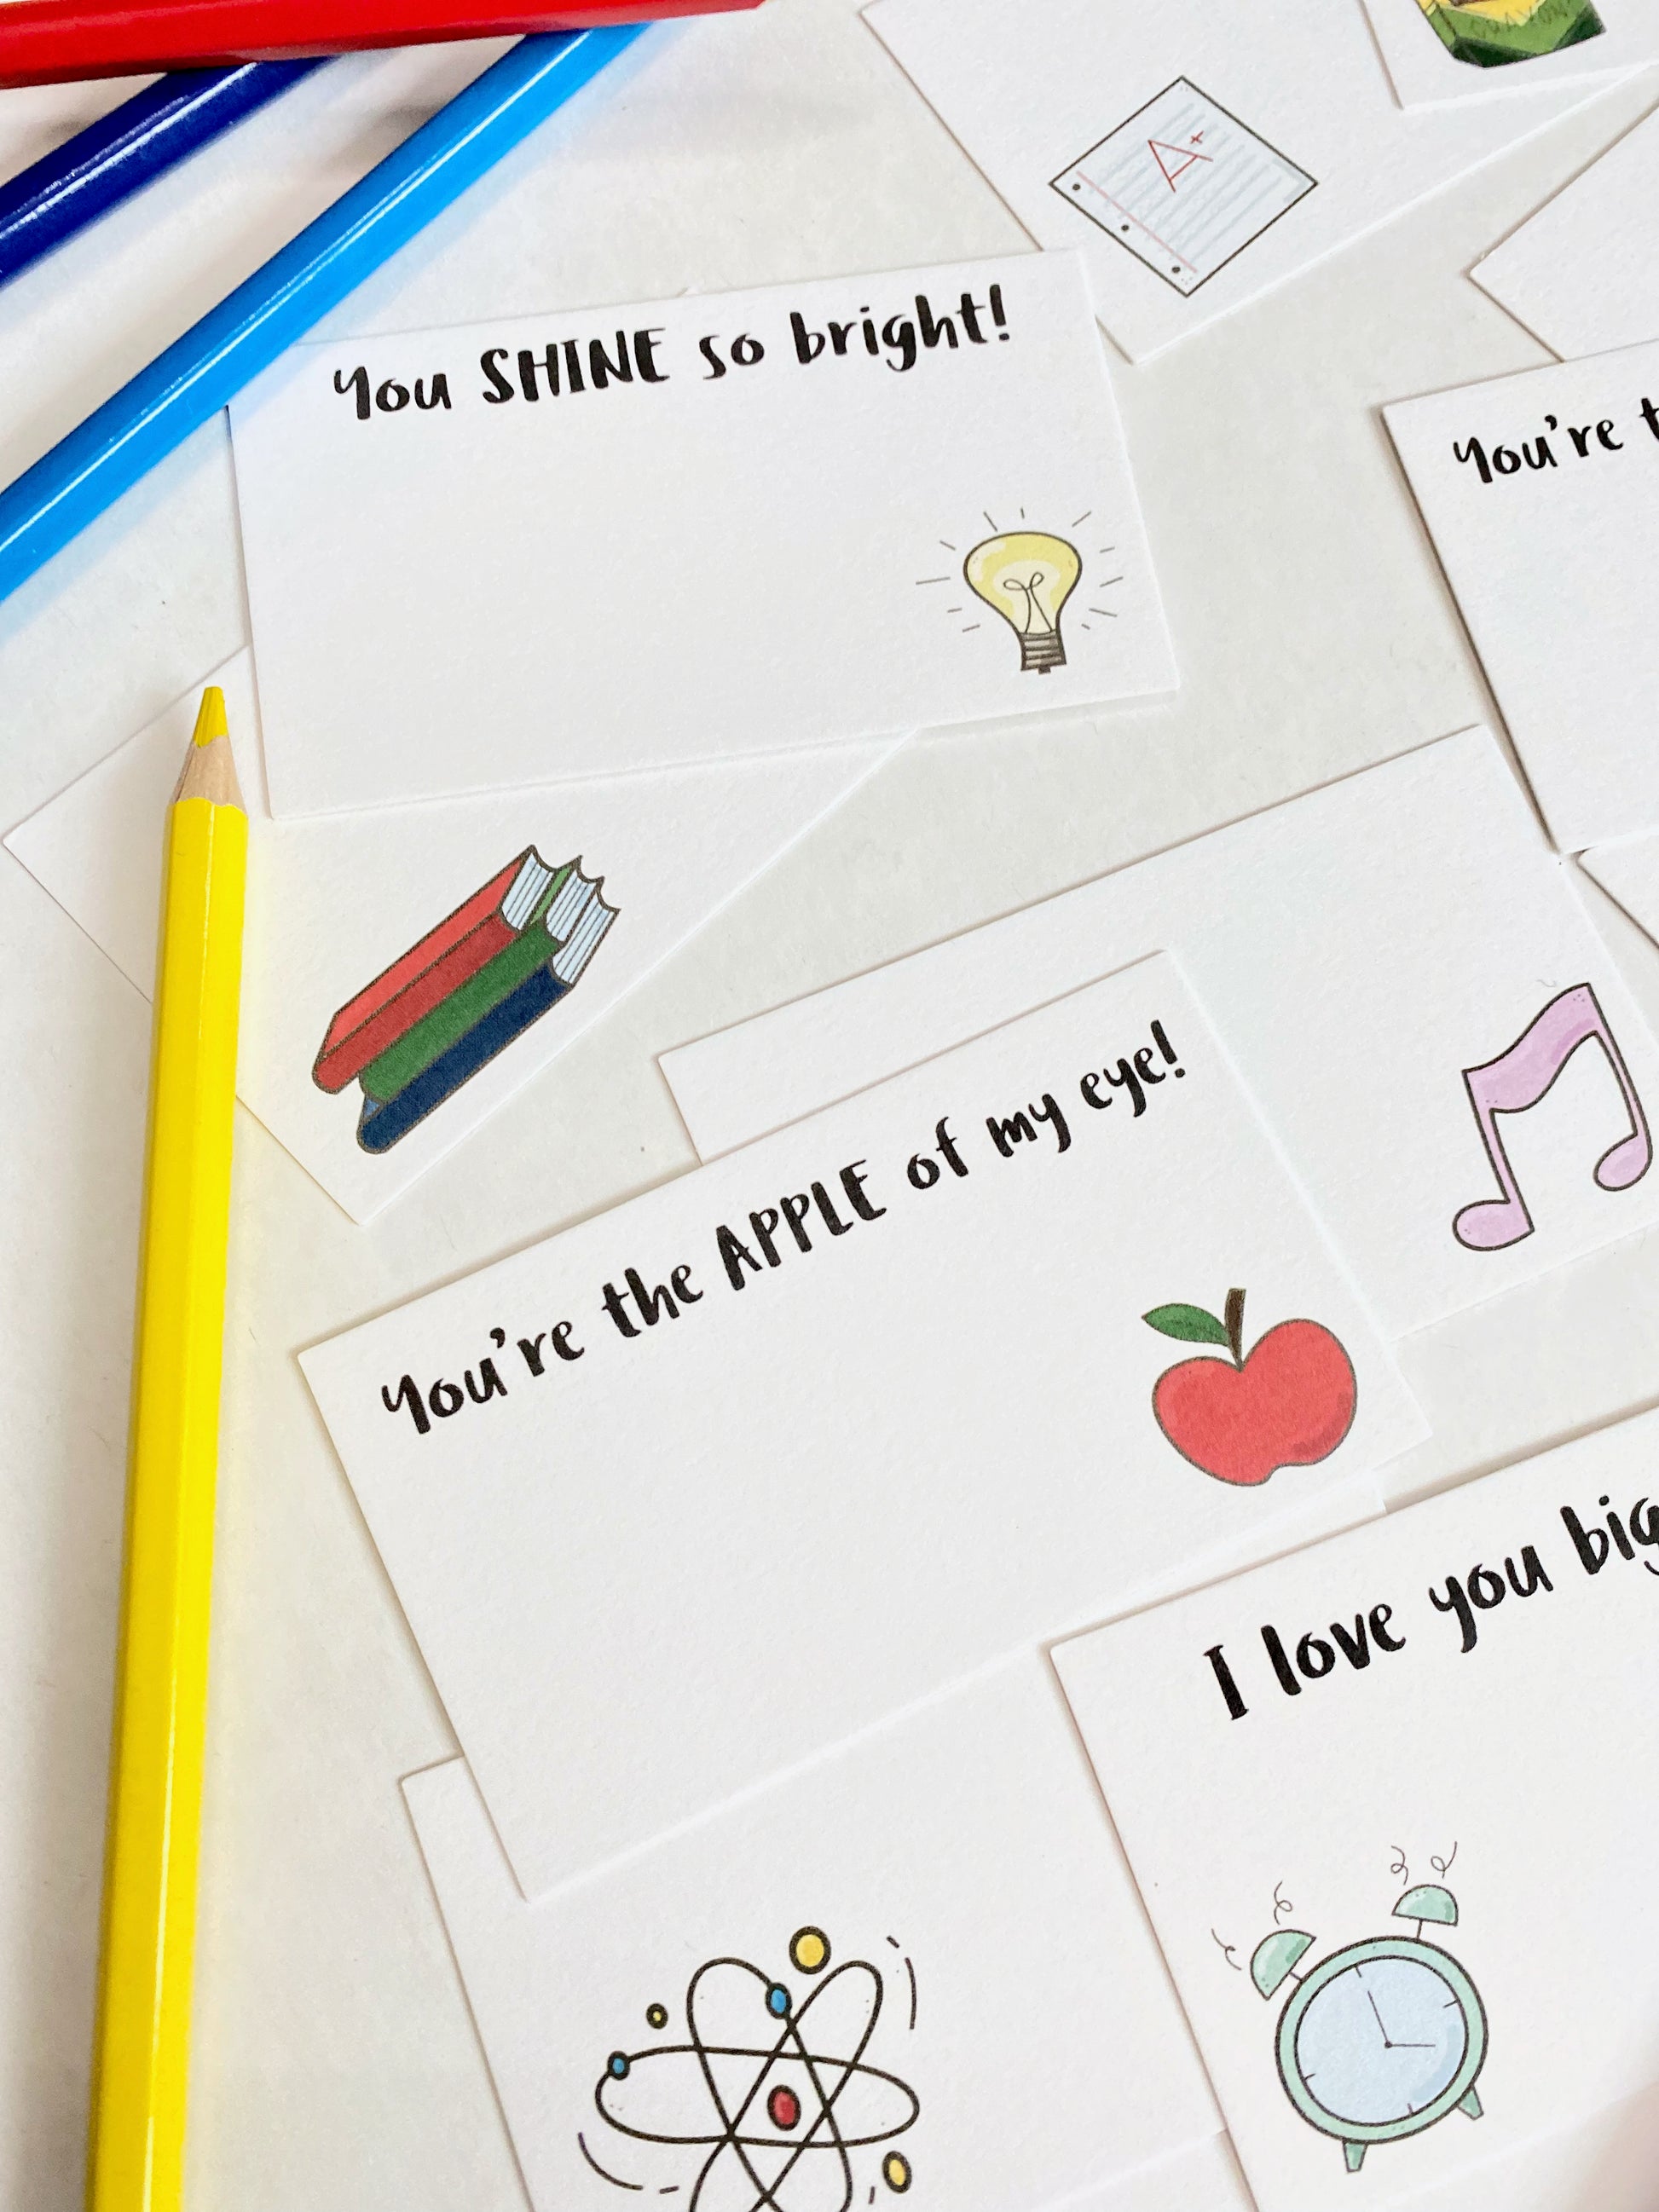 A+
You SHINE so bright!
You're
You're the APPLE of my eye!
I love you big